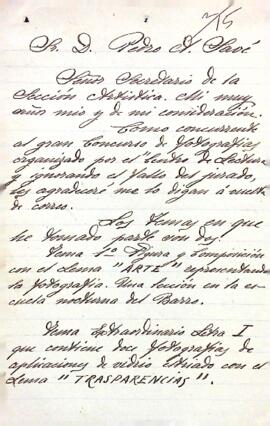 Sr. D. Pedro A. Savé
Señor Secretario de la
Sección Artistica. Mi muy
Sr. mio y de mi consideración.
Como concurrente
al gran Concurso de Fotografías
organizado por el Centro de Lectura
y ignorando el fallo del jurado,
les agradeceré me lo digan á vuelta
de correo.
Los temas en que
he tomado parte son dos:
Tema 1º Figura y Composición
con el Lema "ARTE" representando
la fotografía. Una lección en la es-
cuela nocturna del Barro.
Tema Extraordinario Letra I
que contiene doce fotografías de
aplicaciones de vidrio estriado con el
Lema "TRASPARENCIAS".